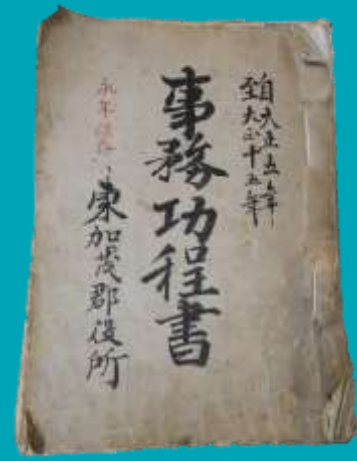 自大正五年
至大正十五年
事務功程書
永年保存
東加茂郡役所